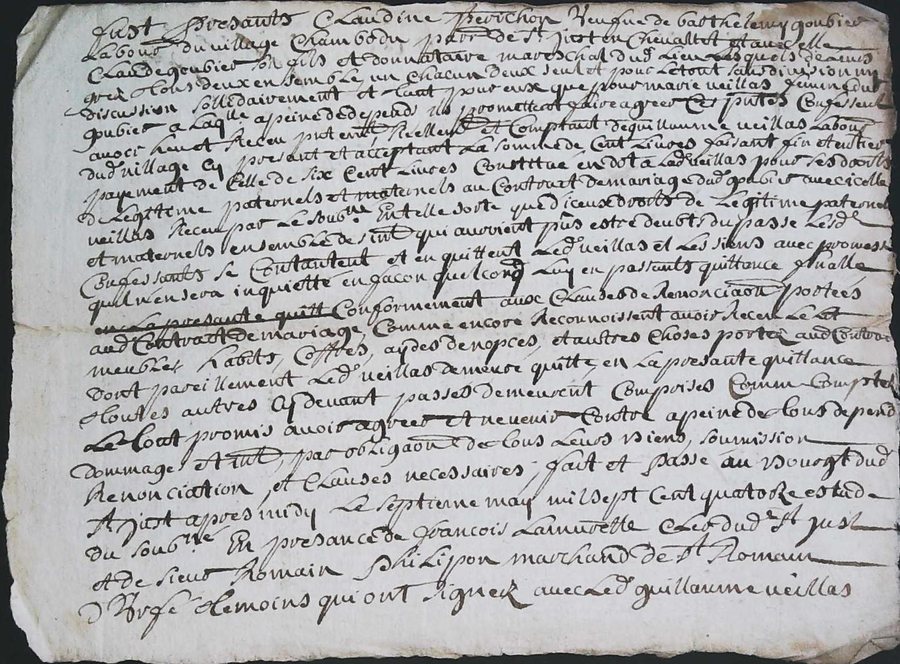 fust presants Claudine perichon Veufue de barthelemy goubier
labour du village Chambodu parr de St Just en Chevallet et avec elle
Claude goubier son fils et donnataire mareschal dud lieu lesquels de leurs
grez tous deux ensemble un chacun deux seul et pour le tout sans division ny
discussion sollidairement et tant pour eux que pour marie veillas femme dud
goubier a laqlle a peine de depends ils promettent faire agreer ces pntes Confessent
avoir heu et Receu pntemt, Reellemt et Comptant de guillaume veillas labour
dud village cy present et acceptant la somme de Cent livres faisant fin et entier
payement de Celle de six Cent livres Constitue en dot a lad veillas pour ses droits
de legitime paternels et maternels au Contract de mariage dud goubier avec icelle
veillas Receu par le soubne En telle sorte que d'iceux droits de legitime paternels
et maternels ensemble des intt qui auroient pus estre deubts du passe lesd
Confessants se Contantent et en quittent led veillas et les siens avec promesse
quil n'en sera inquiette en facon quelconq luy en passants quittance finalle
en la presante quitt Conformement aux Clauses de Renonciaon portees
aud Contract de mariage Comme encore Reconnoissent avoir Receu le lit
meubles, habits, Coffres, aydes de nopces, et autres Choses portez aud Contract
dont pareillement led veillas demeure quitte, en la presante quittance
toutes autres cy devant passes demeurent Comprises Comm Comptez
le tout promis avoir agreer et ne venir Contre a peine de tous depend
dommage et intt, par obligaon de tous leurs biens, soumission
Renonciation et Clauses necessaires; fait et passe au Bourgt dud
St Just apres midy le septieme may mil sept Cent quatorze estude
du soubne En presance de francois Lamurette Clerc dud St Just
et de sieur Romain Philipon marchand de St Romain
d'Urfe temoins qui ont signez avec led guillaume veillas